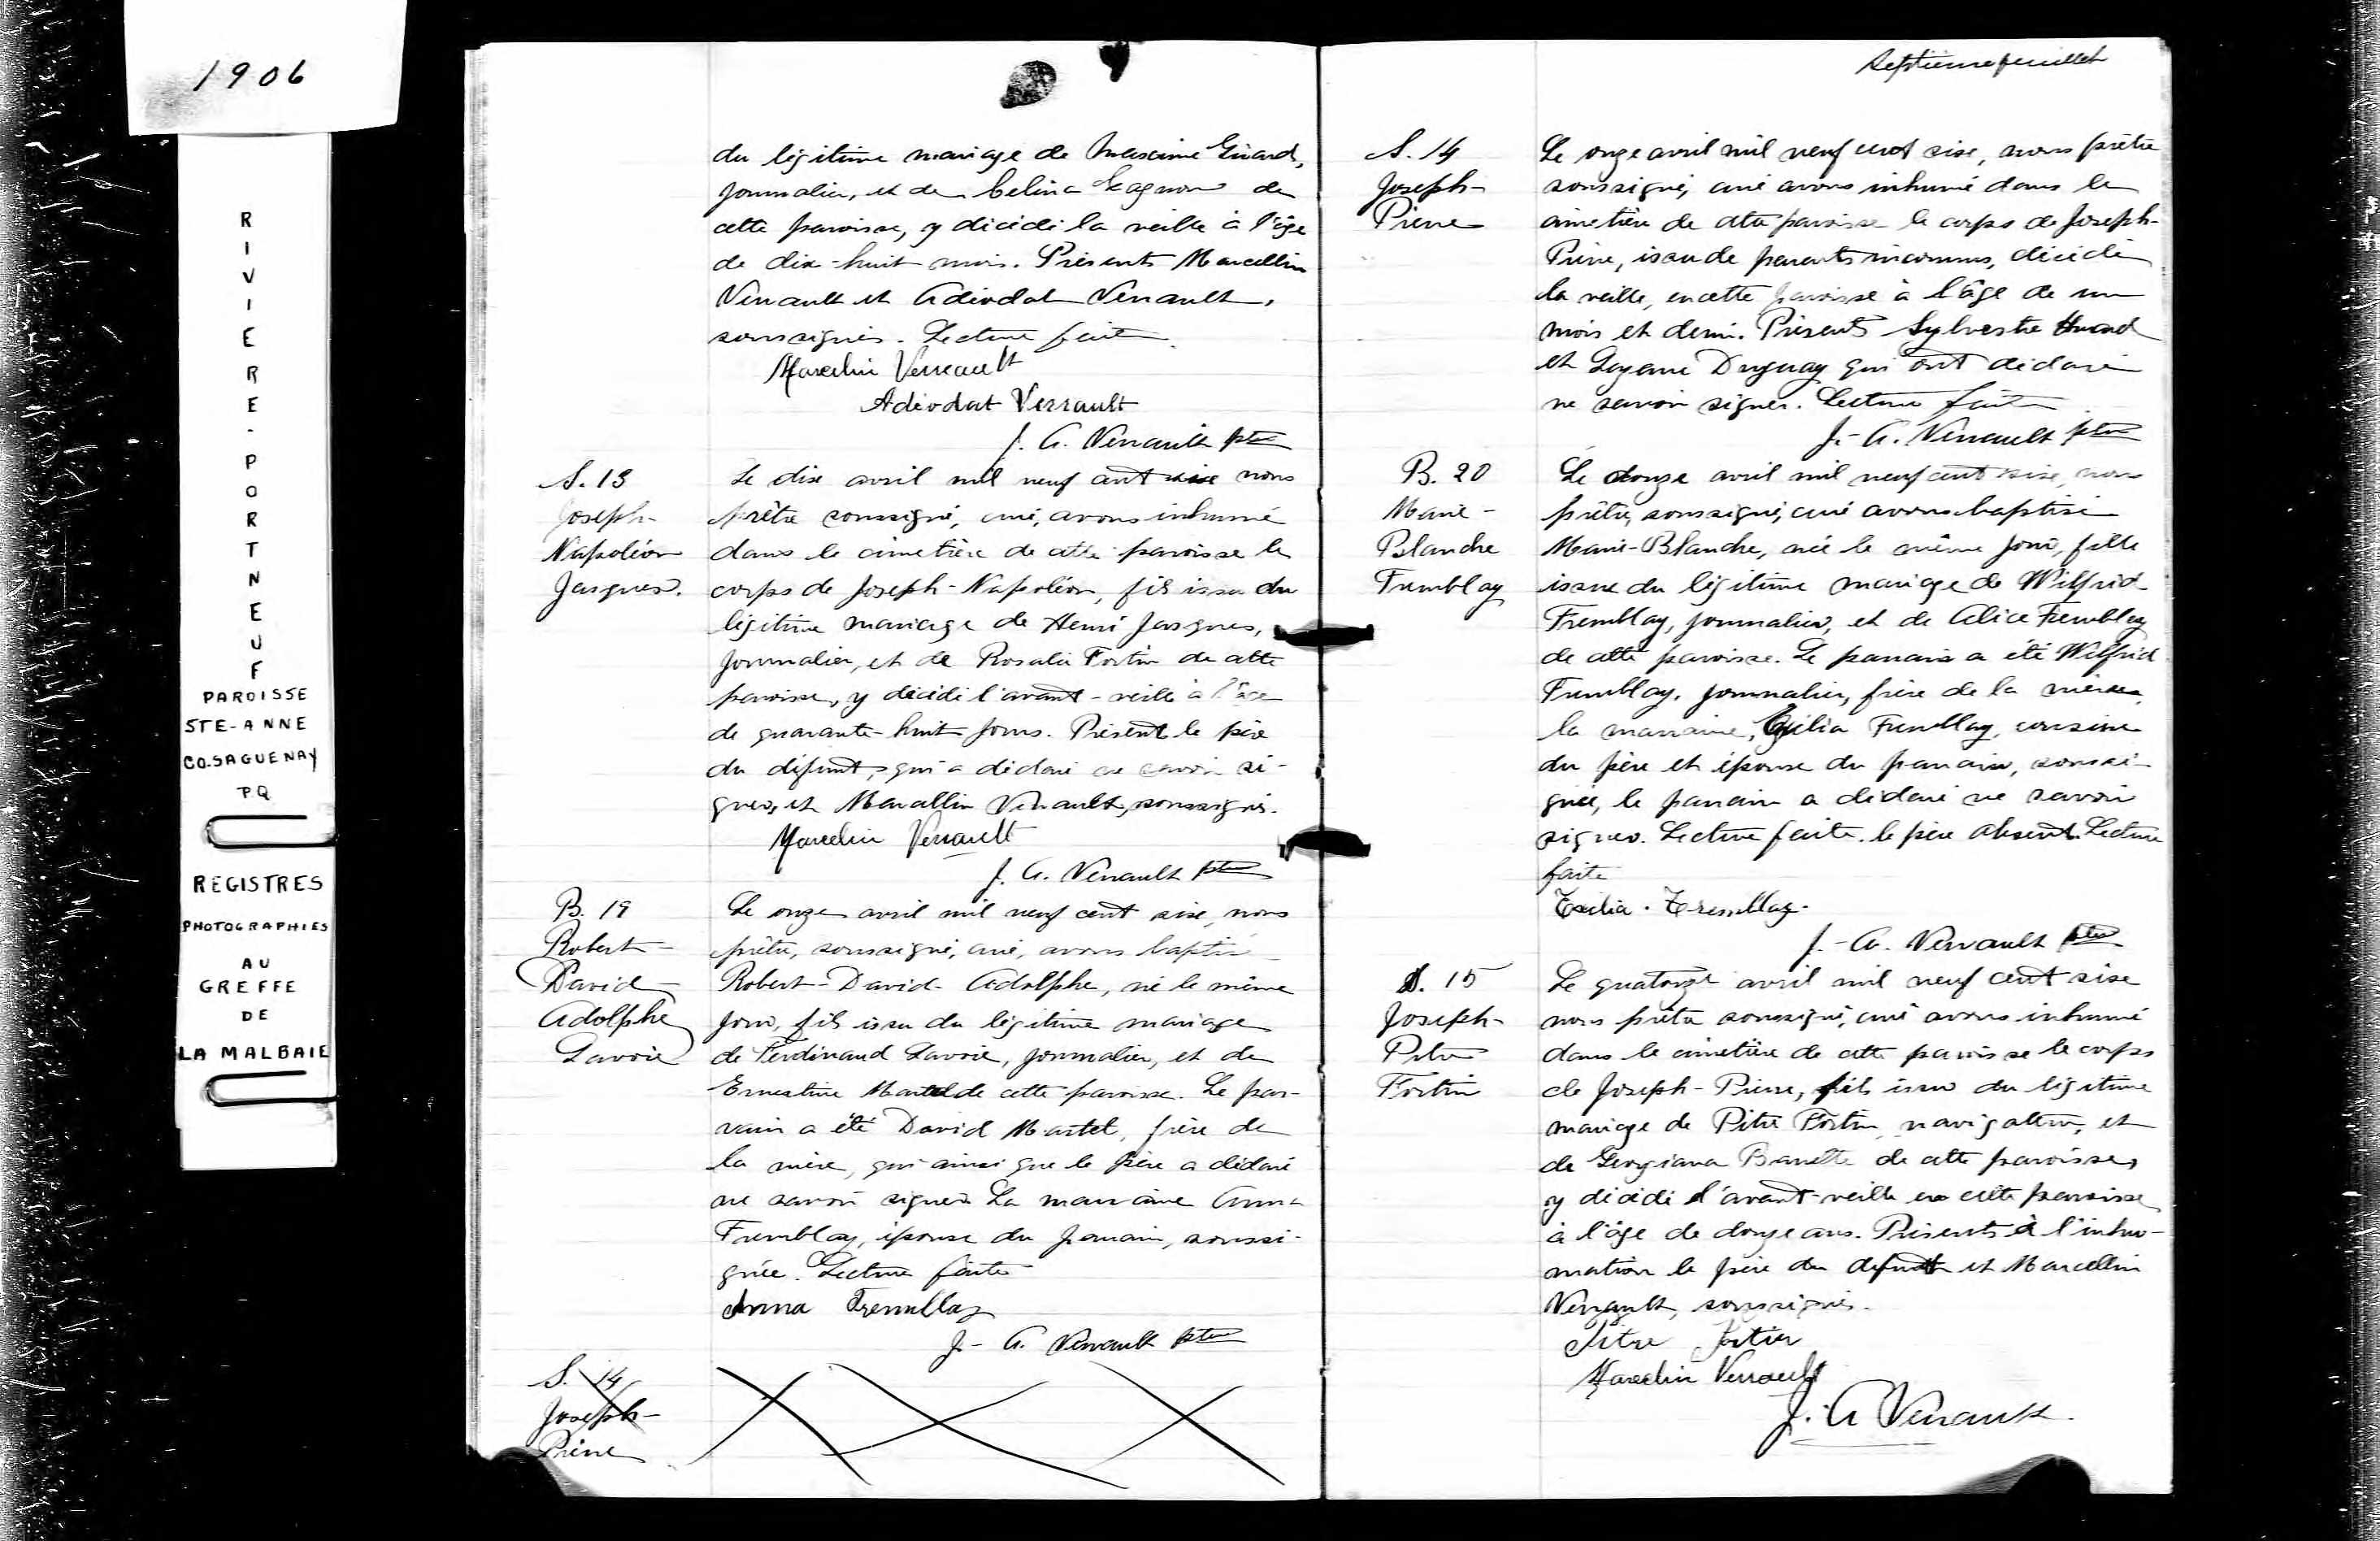 1906
RIVIERE-PORTNEUF
PAROISSE
STE-ANNE
CO.SAGUENAY
PQ
REGISTRES
PHOTOGRAPHIES
AU
GREFFE
DE
LA MALBAIE
du légitime mariage de Maxime Girard,
journalier, et de Celina Gagnon de
cette paroisse, y décédé la veille à l'âge
de dix-huit mois. Présents Marcellin
Verrault et Adéodat Verrault,
soussignés. Lecture faite.
Marcelin Verreault
Adéodat Verrault
J. A. Verrault ptre
S. 13
Joseph-
Napoléon
Jacques.
Le dix avril mil neuf cent six nous
prêtre soussigné, curé, avons inhumé
dans le cimetière de cette paroisse le
corps de Joseph-Napoléon, fils issu du
légitime mariage de Henri Jacques,
journalier, et de Rosalie Fortin de cette
paroisse, y décédé l'avant-veille à l'âge
de quarante-huit jours. Présent le père
du défunt, qui a déclaré ne savoir si-
gner, et Marcellin Verrault, soussignés.
Marcelin Verrault
J. A. Verrault ptre
B. 19
Robert-
David
Adolphe
Lavoie
Le onze avril mil neuf cent six, nous
prêtre, soussigné, curé, avons baptisé
Robert-David-Adolphe, né le même
jour, fils issu du légitime mariage
de Ferdinand Lavoie, journalier, et de
Ernestine Martel de cette paroisse. Le par-
rain a été David Martel, frère de
la mère, qui ainsi que le père a déclaré
ne savoir signer. La marraine Anna
Tremblay, épouse du parrain, soussi-
gnée. Lecture faite
Anna Tremblay
J.-A. Verrault ptre
S. 14
Joseph-
Pierre
Septième feuillet
S. 14
Joseph-
Pierre
Le onze avril mil neuf cent six, nous prêtre
soussigné, curé avons inhumé dans le
cimetière de cette paroisse le corps de Joseph-
Pierre, issu de parents inconnus, décédé
la veille, en cette paroisse à l'âge de un
mois et demi. Présents Sylvestre Huard
et Duguay qui ont déclaré
ne savoir signer. Lecture faite
J.-A. Verrault ptre
B. 20
Marie-
Blanche
Tremblay
Le douze avril mil neuf cent six, nous
prêtre, soussigné, curé avons baptisé
Marie-Blanche, née le même jour, fille
issue du légitime mariage de Wilfrid
Tremblay, journalier, et de Alice Tremblay
de cette paroisse. Le parrain a été Wilfrid
Tremblay, journalier, frère de la mère,
la marraine, Exilia Tremblay, cousine
du père et épouse du parrain, soussi-
gnée, le parrain a déclaré ne savoir
signer. Lecture faite. le père absent. Lecture
faite
Exilia. Tremblay.
J.-A. Verrault ptre
S. 15
Joseph-
Pitre
Fortin
Le quatorze avril mil neuf cent six
nous prêtre soussigné, curé avons inhumé
dans le cimetière de cette paroisse le corps
de Joseph-Pierre, fils issu du légitime
mariage de Pitre Fortin, navigateur, et
de Georgiana de cette paroisse,
y décédé l'avant-veille en cette paroisse
à l'âge de douze ans. Présents à l'inhu-
mation le père du défunt et Marcellin
Verrault, soussignés.
Pitre Fortier
Marcelin Verrault
J. A Verrault.